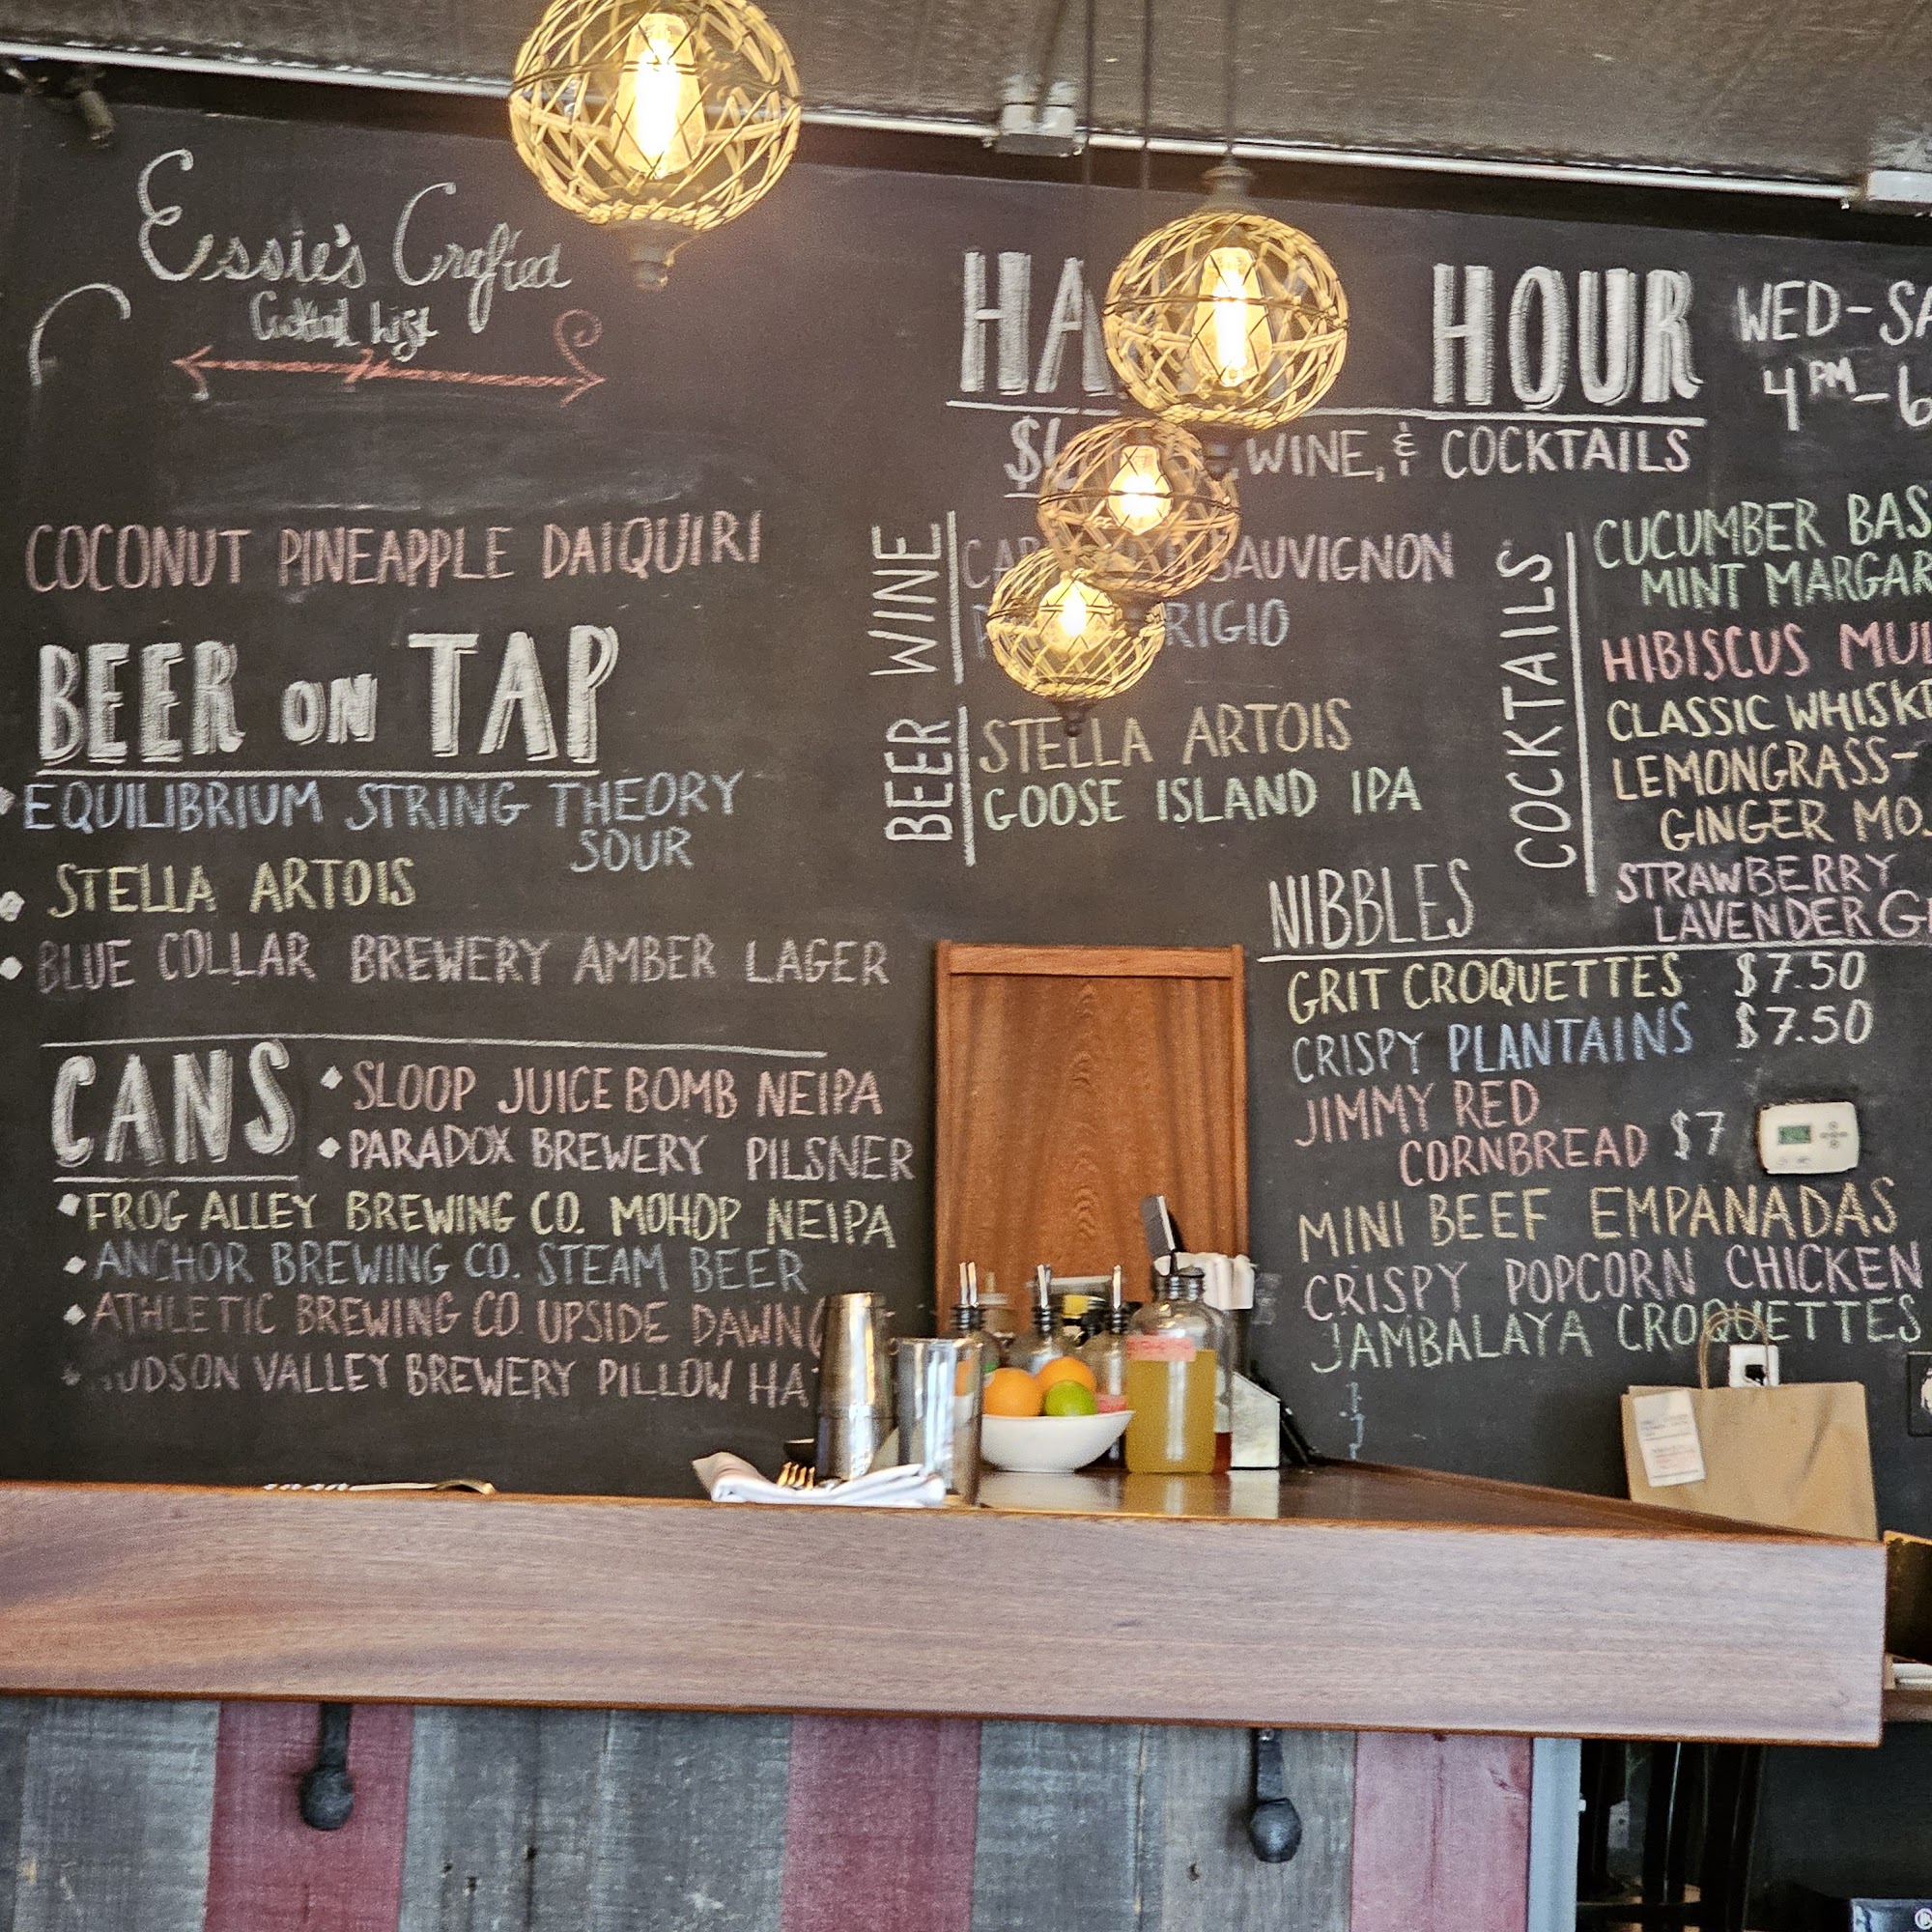 Essie's Crafted
Cocktail List
COCONUT PINEAPPLE DAIQUIRI
BEER ON TAP
EQUILIBRIUM STRING THEORY
SOUR
STELLA ARTOIS
BLUE COLLAR BREWERY AMBER LAGER
CANS
SLOOP JUICE BOMB NEIPA
PARADOX BREWERY PILSNER
FROG ALLEY BREWING CO. MOHOP NEIPA
ANCHOR BREWING CO. STEAM BEER
ATHLETIC BREWING CO. UPSIDE DAWN
VALLEY BREWERY PILLOW
HOUR
WED-
4PM-
WINE, & COCKTAILS
WINE
SAUVIGNON
BEER
STELLA ARTOIS
GOOSE ISLAND IPA
COCKTAILS
CUCUMBER
MINT
HIBISCUS
CLASSIC
LEMONGRASS-
GINGER
STRAWBERRY
LAVENDER
NIBBLES
GRIT CROQUETTES $7.50
CRISPY PLANTAINS $7.50
JIMMY RED
CORNBREAD $7
MINI BEEF EMPANADAS
CRISPY POPCORN CHICKEN
JAMBALAYA CROQUETTES